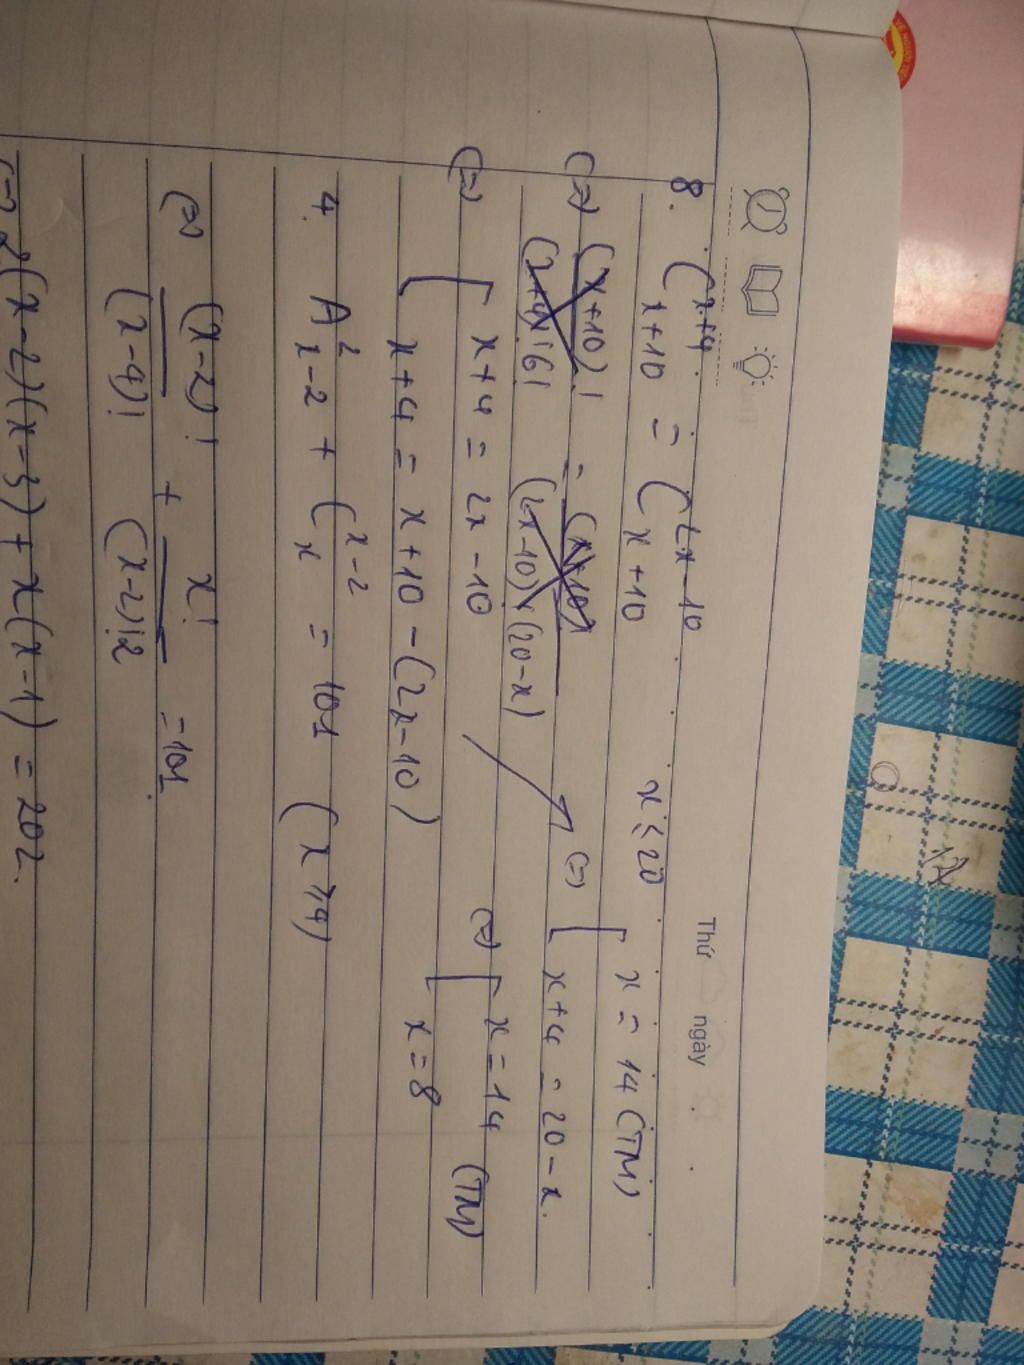 Thứ ngày
8. C_{x+10}^{x+4} = C_{x+10}^{2x-10} x ≤ 20
(=) (x+10)! / (x+4)!6! = (x+10)! / (2x-10)!(20-x) (=) [ x = 14 (TM)
x+4 = 20-x.
(=) [ x+4 = 2x-10 (=) [ x = 14 (TM)
x+4 = x+10-(2x-10) x = 8
4. A_{x-2}^{2} + C_{x}^{x-2} = 101 (x ≥ 4)
(=) (x-2)! / (x-4)! + x! / (x-2)!2 = 101
(=) 2(x-2)(x-3) + x(x-1) = 202.